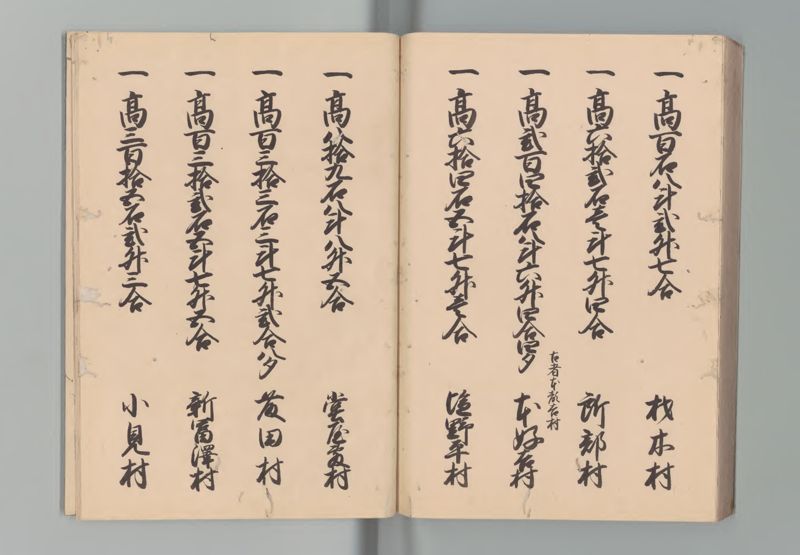 一 高百石八斗弐升七合 杉木村
一 高六拾弐石壱斗七升四合 所部村
一 高弐百四拾石八斗六升四合四夕 本好石村
古者本 石村
一 高六拾四石五斗七升壱合 塩野平村
一 高八拾九石八斗八升五合 堂屋敷村
一 高百三拾三石二斗七升弐合八夕 菅田村
一 高百三拾弐石五斗七升五合 新冨澤村
一 高三百拾五石弐升三合 小見村